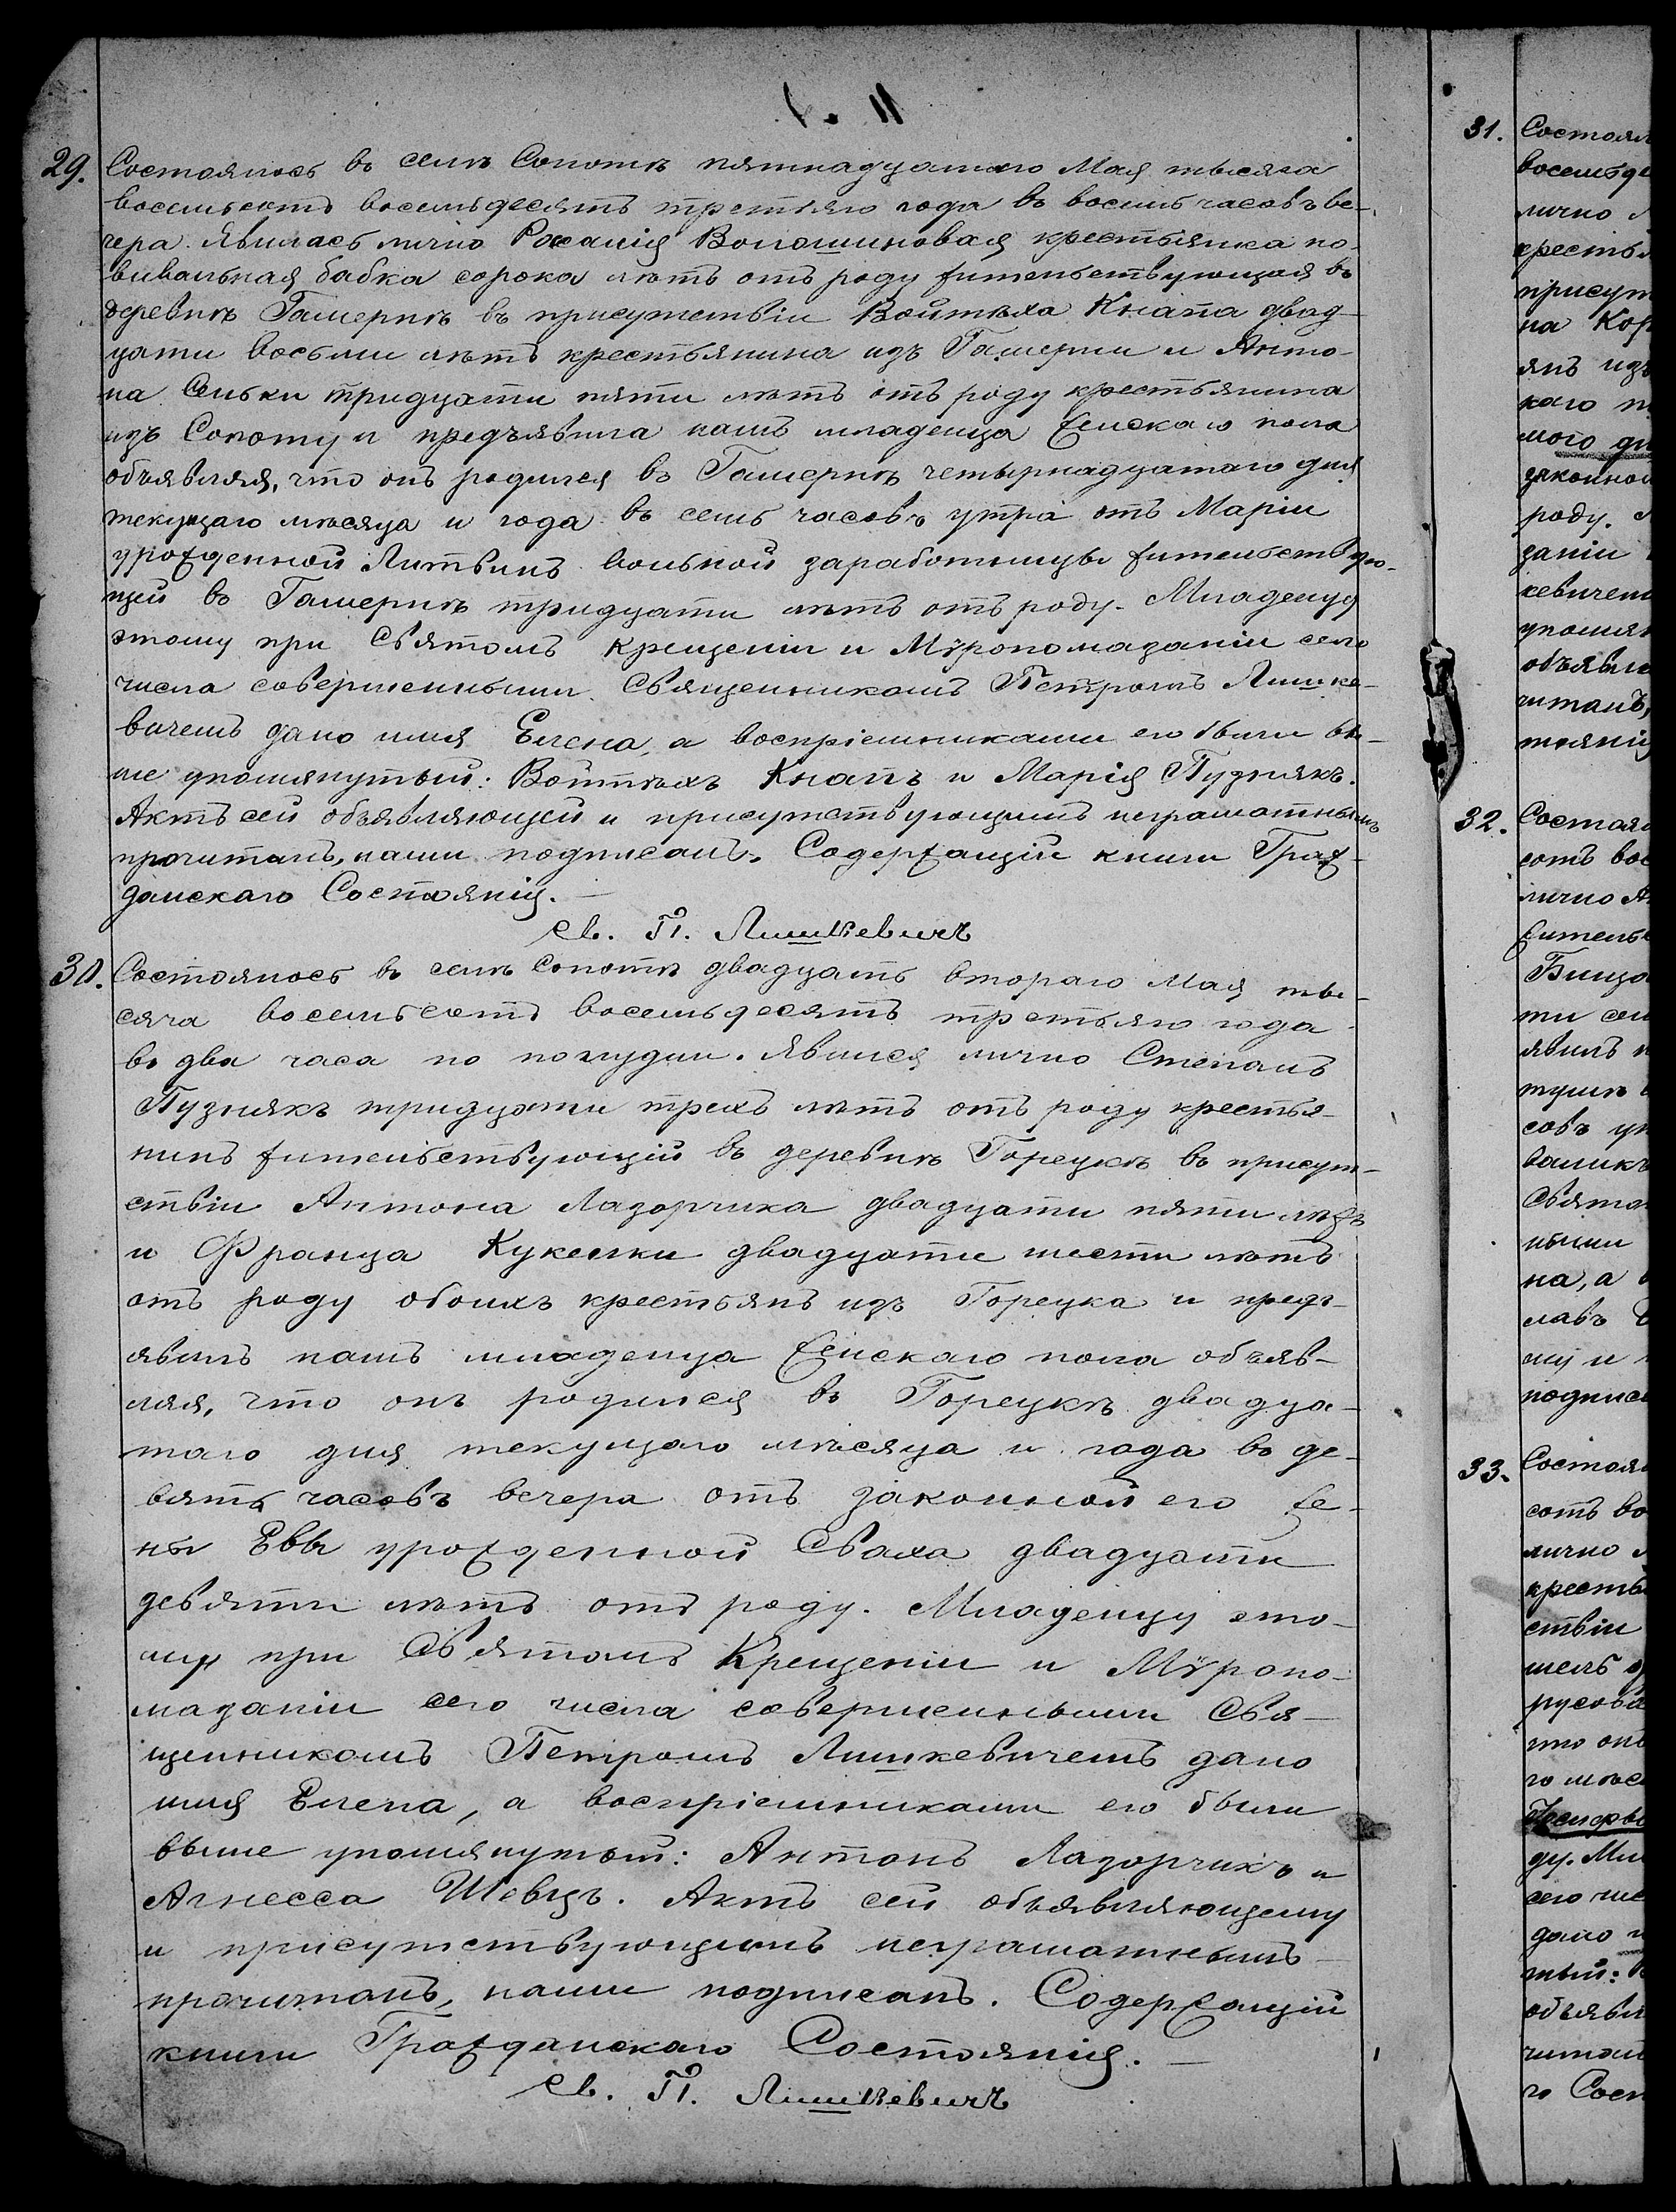 29. Состоялось въ селѣ Сопотѣ пятнадцатаго Мая тысяча
восемьсотъ восемьдесятъ третьяго года въ восемь часовъ ве-
чера. Явилась лично Розалія Волошиновая крестьянка по-
вивальная бабка сорока лѣтъ отъ роду жительствующая въ
деревнѣ Гамернѣ въ присутствіи Войтѣха Кнапа двад-
цати восьми лѣтъ крестьянина изъ Гамерни и Анто-
на Сельки тридцати пяти лѣтъ отъ роду крестьянина
изъ Сопоту и предъявила намъ младенца женскаго пола
объявляя, что онъ родился въ Гамернѣ четырнадцатаго дня
текущаго мѣсяца и года въ семь часовъ утра отъ Маріи
урожденной Литвинъ вольной заработницы жительствую-
щей въ Гамернѣ тридцати лѣтъ отъ роду. Младенцу
этому при Святомъ Крещеніи и Мѵропомазаніи сего
числа совершенными Священникомъ Петромъ Лишке-
вичемъ дано имя Елена, а воспріемниками его были вы-
ше упомянутый: Войтѣхъ Кнапъ и Марія Пузнякъ.
Актъ сей объявляющей и присутствующимъ неграмотнымъ
прочитанъ, нами подписанъ. Содержащій книги Граж-
данскаго Состоянія.
Св. П. Лишкевичъ
30. Состоялось въ селѣ Сопотѣ двадцать втораго Мая ты-
сяча восемьсотъ восемьдесятъ третьяго года
въ два часа по полудни. Явился лично Степанъ
Пузнякъ тридцати трехъ лѣтъ отъ роду крестья-
нинъ жительствующій въ деревнѣ Горецкѣ въ присут-
ствіи Антона Лазорчика двадцати пяти лѣтъ
и Франца Кукелки двадцати шести лѣтъ
отъ роду обоихъ крестьянъ изъ Горецка и предъ-
явилъ намъ младенца женскаго пола объяв-
ляя, что онъ родился въ Горецкѣ двадца-
таго дня текущаго мѣсяца и года въ де-
вять часовъ вечера отъ законной его же-
ны Евы урожденной Сваха двадцати
девяти лѣтъ отъ роду. Младенцу это-
му при Святомъ Крещеніи и Мѵропо-
мазаніи сего числа совершенными Свя-
щенникомъ Петромъ Лишкевичемъ дано
имя Елена, а воспріемниками его были
выше упомянутый: Антонъ Лазорчикъ и
Агнесса Шевцъ. Актъ сей объявляющему
и присутствующимъ неграмотнымъ
прочитанъ, нами подписанъ. Содержащій
книги Гражданскаго Состоянія.
Св. П. Лишкевичъ
31. Состоял
восемьде
лично
крестья
присут
на Кор
янъ изъ
каго п
мого дн
законной
роду.
заніи
кевичем
упомян
объявля
читанъ,
тоянія
32. Состоял
сотъ вос
лично А
жительс
ти сем
явилъ н
совъ ут
Свято
ными
на, а
лавъ
му и
подписа
33. Состоял
сотъ во
лично
кресть
ствіи
что онъ
го мѣс
ду. Мла
сего чис
дано и
тый:
объявл
читан
го Сост